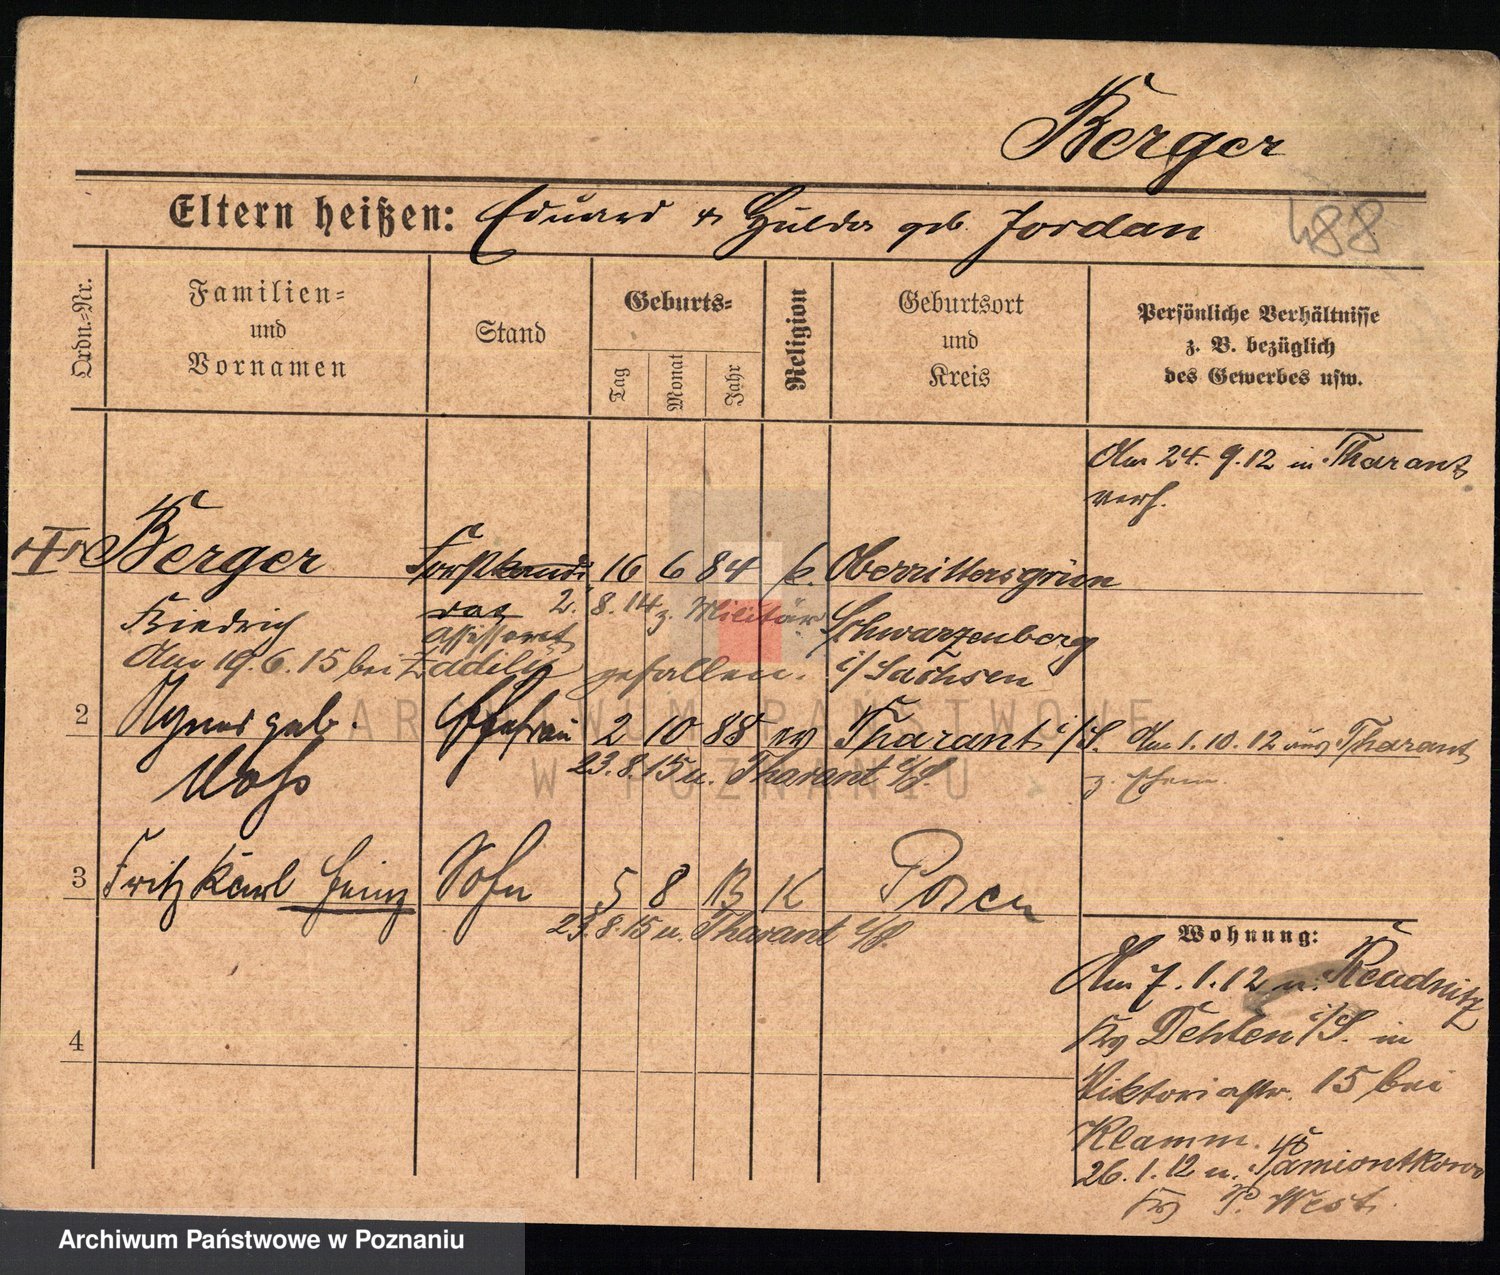 Berger
Eltern heißen: Eduard & Hulda geb. Jordan
488
Ordn.-Nr.
Familien-
und
Vornamen
Stand
Geburts-
Tag
Monat
Jahr
Religion
Geburtsort
und
Kreis
Persönliche Verhältnisse
z. B. bezüglich
des Gewerbes usw.
Am 24.9.12 in Tharant
verh.
Berger
Forstkandi
dat
assessor
16 6 84 k. Oberrittersgrün
2.8.14 z. Militär
Friedrich
Schwarzenberg
i/Sachsen
Am 19.6.15 bei gefallen.
2 Agnes geb. Ehefrau 2 10 88 ev Tharant i/S. Am 1.10.12 aus Tharant
z. Ehem.
23.8.15 n. Tharant i/S.
3 Fritz Karl Heinz Sohn 5 8 13 K Posen
23.8.15 n. Tharant i/S.
4
Wohnung:
Am 7.1.12 v. Reudnitz
Krs Dehlen i/S. in
Viktoriastr. 15 bei
Klamm.
26.1.12 n. Pamiontkowo
Krs P. West.
ARCHIWUM PAŃSTWOWE
W POZNANIU
Archiwum Państwowe w Poznaniu